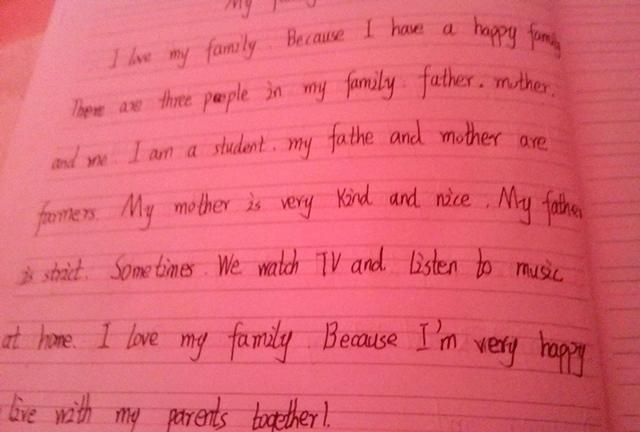 My
I love my family. Because I have a happy family
There are three people in my family. father. mother.
and me. I am a student. my fathe and mother are
farmers. My mother is very kind and nice. My father
is strict. Sometimes. We watch TV and listen to music
at home. I love my family. Because I'm very happy
live with my parents together!.